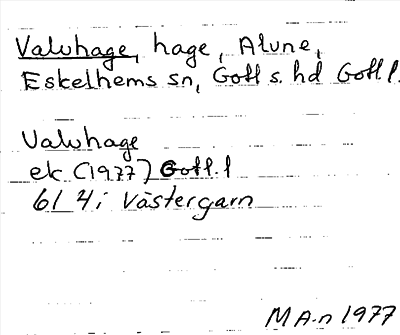 Valvhage, hage, Alvne,
Eskelhems sn, Gotl s. hd Gotl l.
Valvhage
ek (1977) Gotl. l
6I 4i Västergarn
M A-n 1977